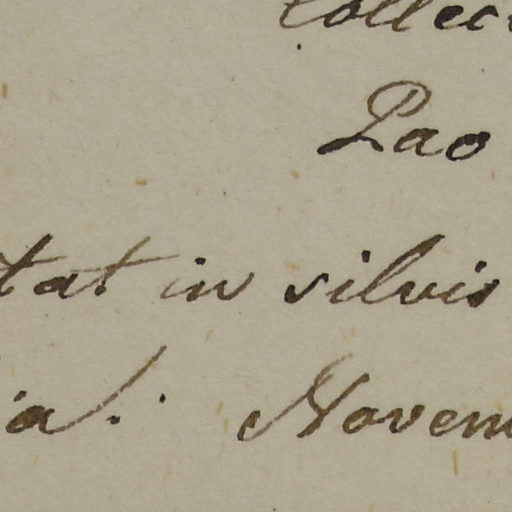 Collec
Pao
tat in silvis
ia. Novem